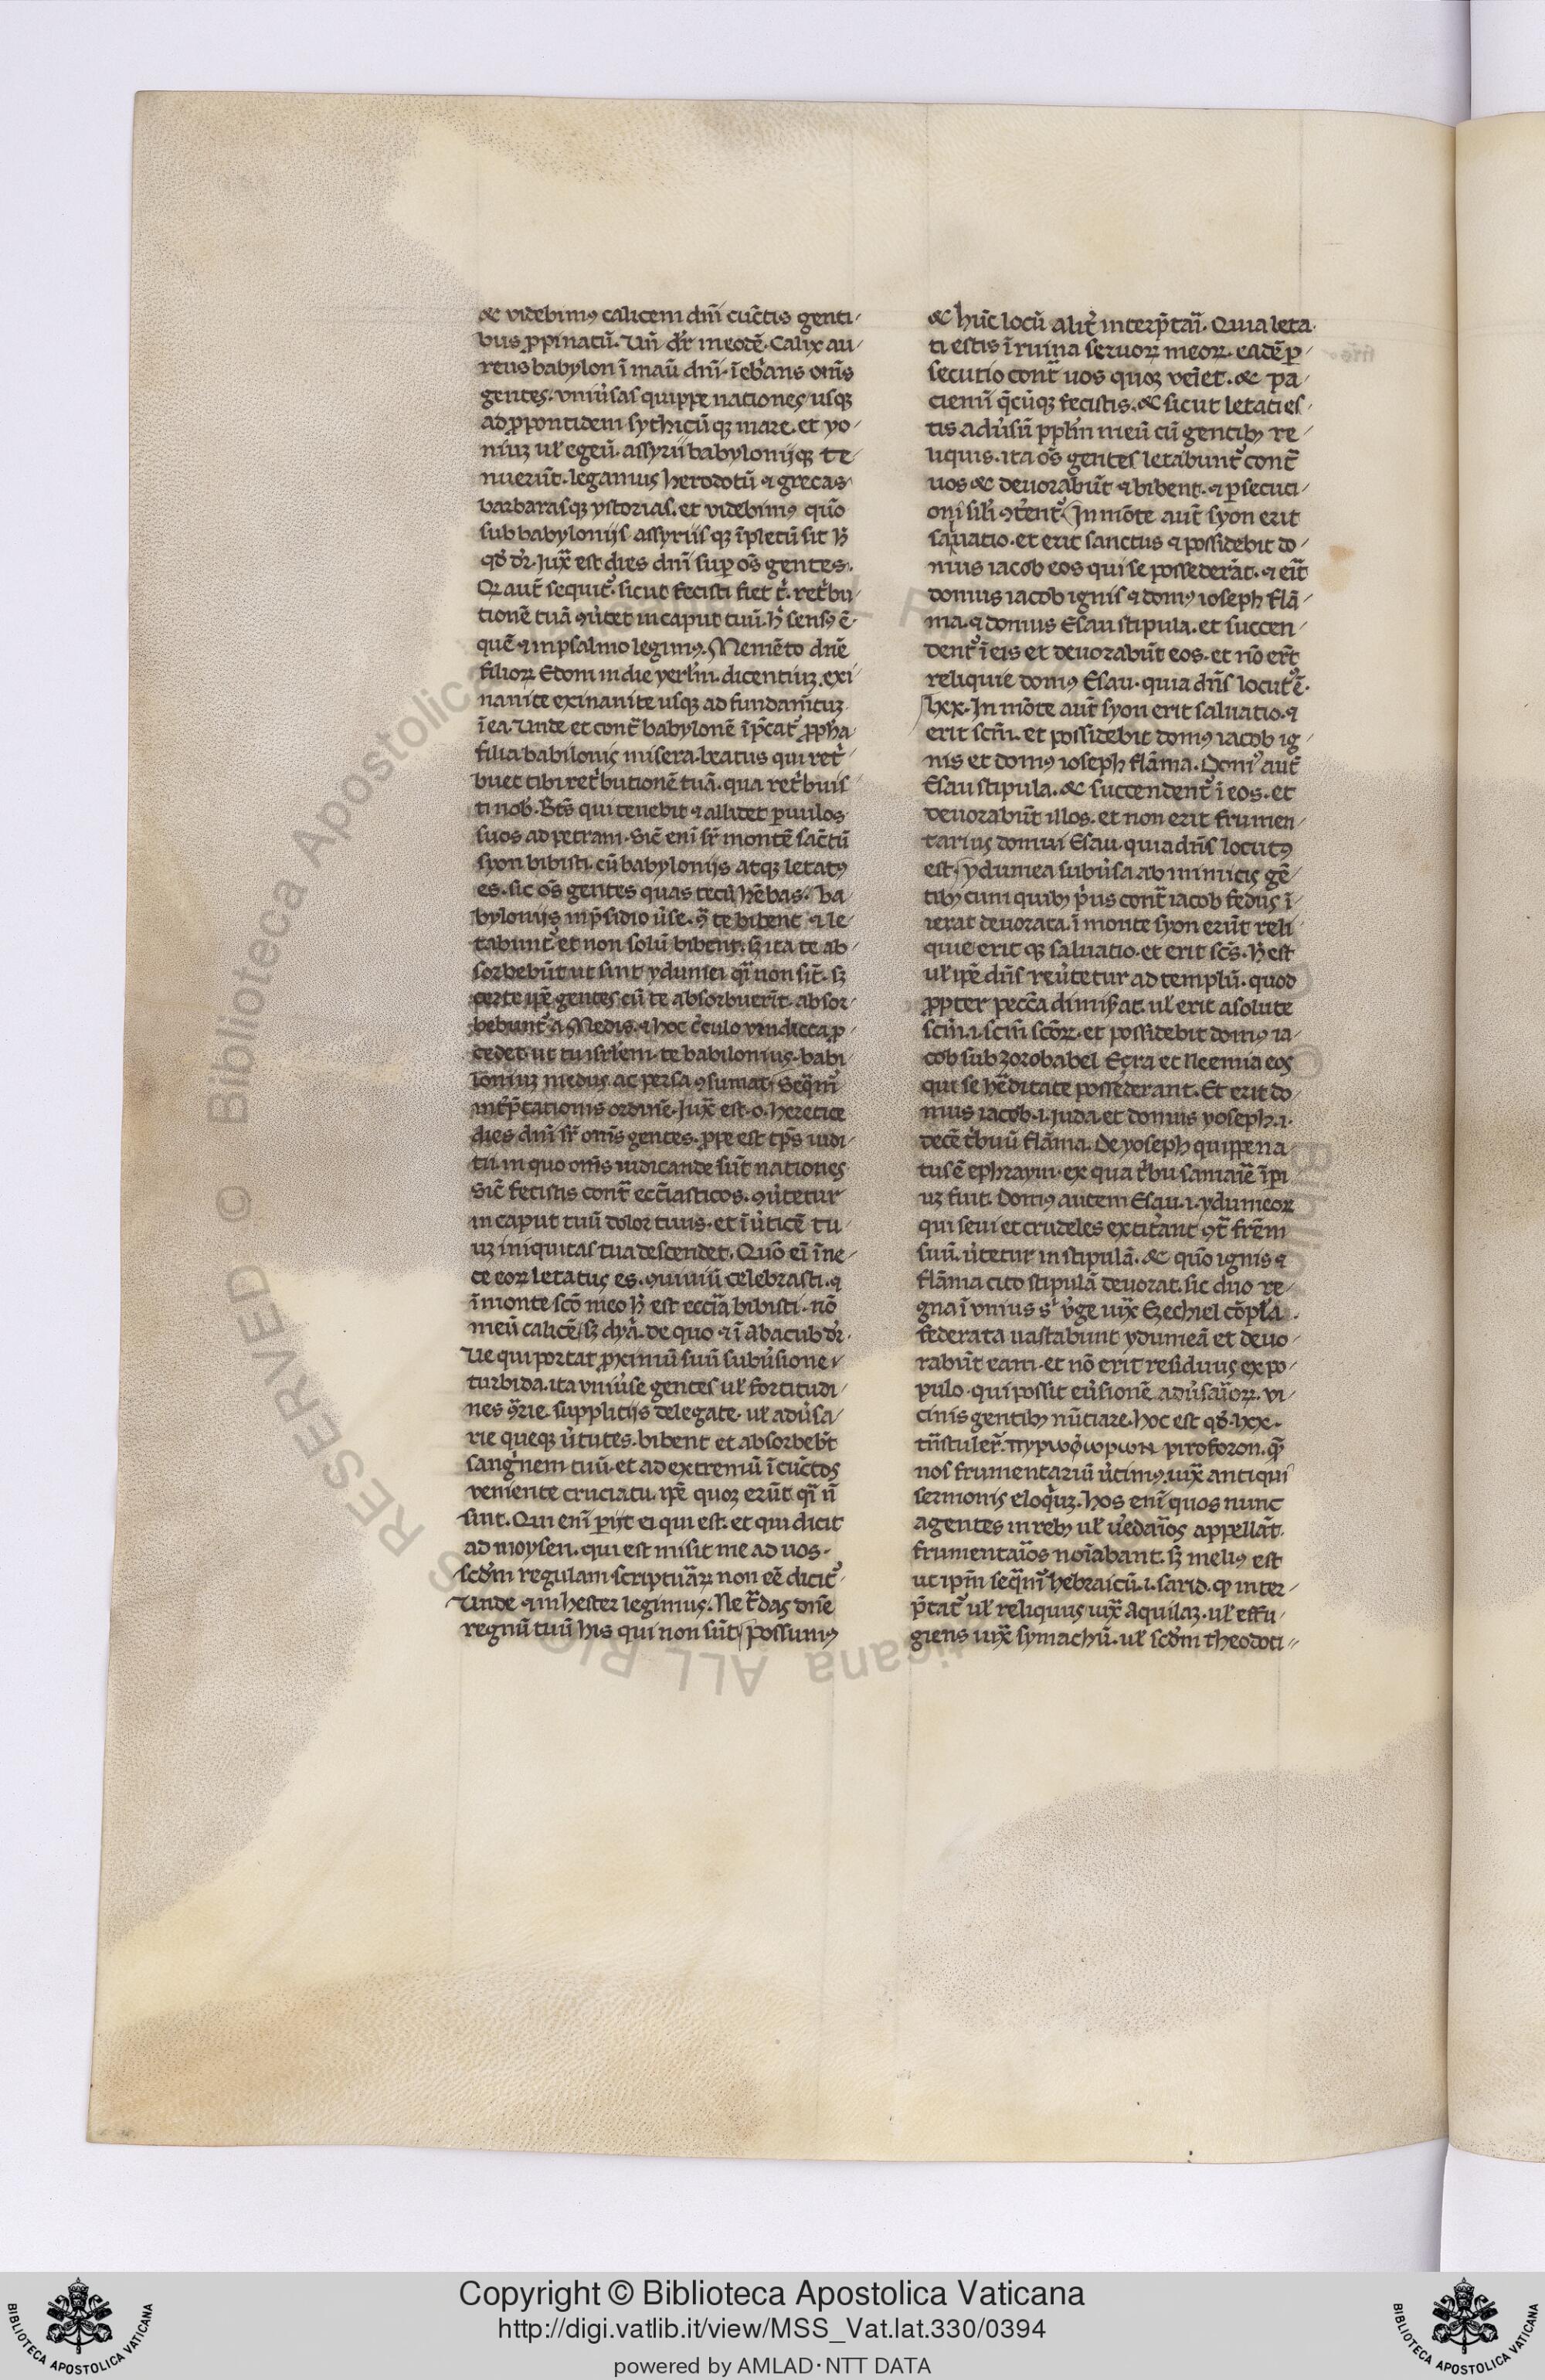 ⁊c videbimꝰ calicem dñi cūctis genti
bus ꝓpinatū. Vñ dr̄ in eodē. Calix au
reus babylon ī manū dñi. īebrians om̄s
gentes. vniv̓sas quippe nationes usqꝫ
ad ꝓpontidem sythicū qꝫ mare. et yo
niuꝫ ul̓ egeū. assyrii babylonijqꝫ te
nuerūt. legamus herodotū ⁊ grecas
barbarasqꝫ ystorias. et videbimꝰ quō
sub babylonijs assyriis qꝫ īpletū sit h̓
qd̓ dr̄. Jux̄ est dies dñi suꝑ os̄ gentes.
Qꝛ aut̄ sequit̓. sicut fecisti fiet t̓. ret̓bu
tionē tuā ꝯv̓tet in caput tuū. h̓ sensꝰ ē
quē ⁊ in psalmo legimꝰ. Memēto dn̄e
filioꝝ Edom in die yerl̓m. dicentiuꝫ. exi
nanite exinanite usqꝫ ad fundam̄tuꝫ
ī ea. Unde et cont̄ babylonē īp̄cat̓ ꝓpha
filia babilonis misera. beatus qui ret̓
buet tibi ret̓butionē tuā. qua ret̓buis
ti nob̓. Bt̄s qui tenebit ⁊ allidet ꝑvulos
suos ad petram. Sic̄ eni̅ sr̄ montē sāctū
syon bibisti. cū babylonijs atqꝫ letatꝰ
es. sic os̄ gentes quas tecū hēbas. Ba
bylonijs in p̄sidio v̓se. ꝯ̄ te bibent ⁊ le
tabunt̓ et non solū bibent. sꝫ ita te ab
sorbebūt ut sint ydumei qi̅ non sīt. sꝫ
certe ipē gentes cū te absorbuerīt. absor
bebunt̓ a Medis. ⁊ hoc c̓culo vindicta ꝓ
cedet. ut tu isrl̓em. te babilonius. babi
loniuꝫ medus ac persa ꝯsumat. Seq̄m̓
int̓p̄tationis ordinē. Jux̄ est. o. heretice
dies dñi sr̄ om̄s gentes. ꝓpe est tp̄s iudi
tii. in quo om̄s iudicande sūt nationes
Sic̄ fecistis cont̄ eccl̄iasticos. ꝯv̓tetur
in caput tuū dolor tuus. et ī v̓ticē tu
uꝫ iniquitas tua descendet. Quō ei̅ ī ne
ce eoꝝ letatus es. ꝯuiuiū celebrasti. ⁊
ī monte scō meo h̓ est eccl̄ia bibisti. nō
meū calicē sꝫ dya̓. de quo ⁊ ī Abacub dr̄.
Ve qui portat ꝓximū suū subv̓sione
turbida. ita vniv̓se gentes ul̓ fortitudi
nes ꝯ̄rie supplitijs delegate. ul̓ adv̓sa
rie queqꝫ v̓tutes. bibent et absorbebt̄
sang̓nem tuū. et ad extremū ī cūctos
veniente cruciatu. ipē quoꝫ erūt qi̅ ñ
sint. Qui eni̅ ꝑijt ei qui est. et qui dicit
ad moysen. qui est misit me ad uos.
scd̓m regulam scriptuaꝝ non eē dicit̓
Unde ⁊ in hester legimus. Ne t̄das dn̄e
regnū tuū his qui non sūt. Possumꝰ
⁊c hūc locū alit̓ interp̄tai̅. Quia leta
ti estis ī ruina seruoꝝ meoꝝ. eadē ꝑ
secutio cont̄ uos quoꝫ veīet. ⁊c pa
ciemī q̄cūqꝫ fecistis. ⁊c sicut letati es
tis adv̓sū ppl̓m meū cū gentibꝫ re
liquis. ita os̄ gentes letabunt̓ cont̄
uos ⁊c deuorabūt ⁊ bibent. ⁊ ꝑsecuti
oni sil̓i ꝯt̓ent̓. In mōte aut̄ syon erit
saluatio. et erit sanctus ⁊ possidebit do
mus iacob eos qui se possederāt. ⁊ eīt
domus iacob ignis ⁊ domꝰ ioseph flā
ma. ⁊ domus Esau stipula. et succen
dent̓ ī eis et deuorabūt eos. et nō erīt
reliquie domꝰ Esau. quia dn̄s locut̓ ē.
lxx. In mōte aut̄ syon erit saluatio. ⁊
erit scm̄. et possidebit domꝰ iacob ig
nis et domꝰ ioseph flāma. Domꝰ aut̄
Esau stipula. ⁊c succendent̓ ī eos. et
deuorabūt illos. et non erit frumen
tarius domui Esau. quia dn̄s locutꝰ
est. ydumea subv̓sa ab inimicis gē
tibꝫ cum quibꝫ p̓us cont̄ iacob fedus ī
ierat deuorata. ī monte syon erūt reli
quie erit qꝫ saluatio. et erit scs̄. h̓ est
ul̓ ipē dn̄s reu̓tetur ad templū. quod
ꝓpter pecc̄a dimis̓at. ul̓ erit asolute
scm̄. i. scm̄ scōꝝ. et possidebit domꝰ ia
cob sub zorobabel Ezra et Neemia eos
qui se hēditate possederant. Et erit do
mus iacob. i. iuda. et domus yoseph. i.
decē t̓buū flāma. De yoseph quippe na
tus ē ephraym. ex qua t̓bu samaīe īpi
uꝫ fuit. Domꝰ autem Esau. i. ydumeoꝝ
qui seui et crudeles extit̓ant ꝯt̄ frēm
suū. v̓tetur in stipulā. ⁊c quō ignis ⁊
flāma cito stipulā deuorat. sic duo re
gna ī vnius s̓ v̓ge iux̄ Ezechiel cōpl̓a
federata uastabunt ydumeā et deuo
rabūt eam. et nō erit residuus ex po
pulo. qui possit eu̓sionē adv̓saioꝝ. vi
cinis gentibꝫ nūtiare. hoc est qd̓. lxx.
tn̄stuler̄. πυρωφωρων piroforon. q̄
nos frumentariū v̓timꝰ. iux̄ antiqui
sermonis eloq̓uꝫ. hos eni̅ quos nunc
agentes in rebꝫ ul̓ v̓edaīos appellāt.
frumentaīos noīabant. sꝫ meliꝰ est
ut ipm̄ seq̄m̓ hebraicū. i. sarid. qꝫ inter
p̄tat̓ ul̓ reliquus iux̄ Aquilaꝫ. ul̓ effu
giens iux̄ symachū. ul̓ scd̓m theodoti
Copyright © Biblioteca Apostolica Vaticana
http://digi.vatlib.it/view/MSS_Vat.lat.330/0394
powered by AMLAD·NTT DATA
BIBLIOTECA APOSTOLICA VATICANA
BIBLIOTECA APOSTOLICA VATICANA